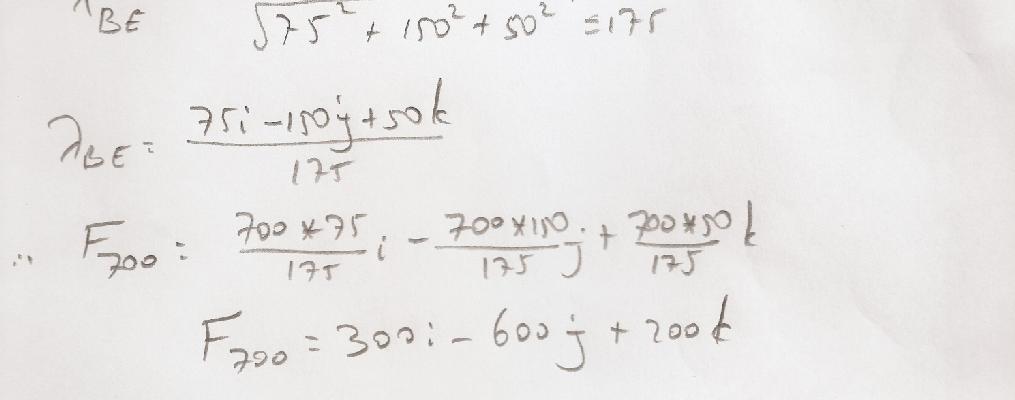 λBE √75² + 150² + 50² = 175
λBE = (75i - 150j + 50k) / 175
∴ F700 = (700*75)/175 i - (700*150)/175 j + (700*50)/175 k
F700 = 300i - 600j + 200k